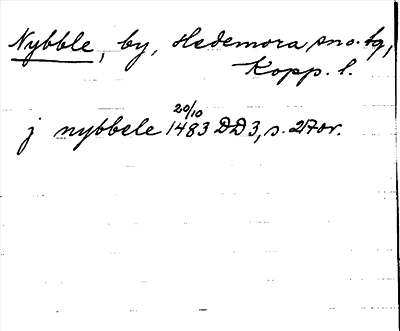 Nybble, by, Hedemora sn o. tg,
Kopp. l.
20/10
j nybbele 1483 DD3, s. 217 or.